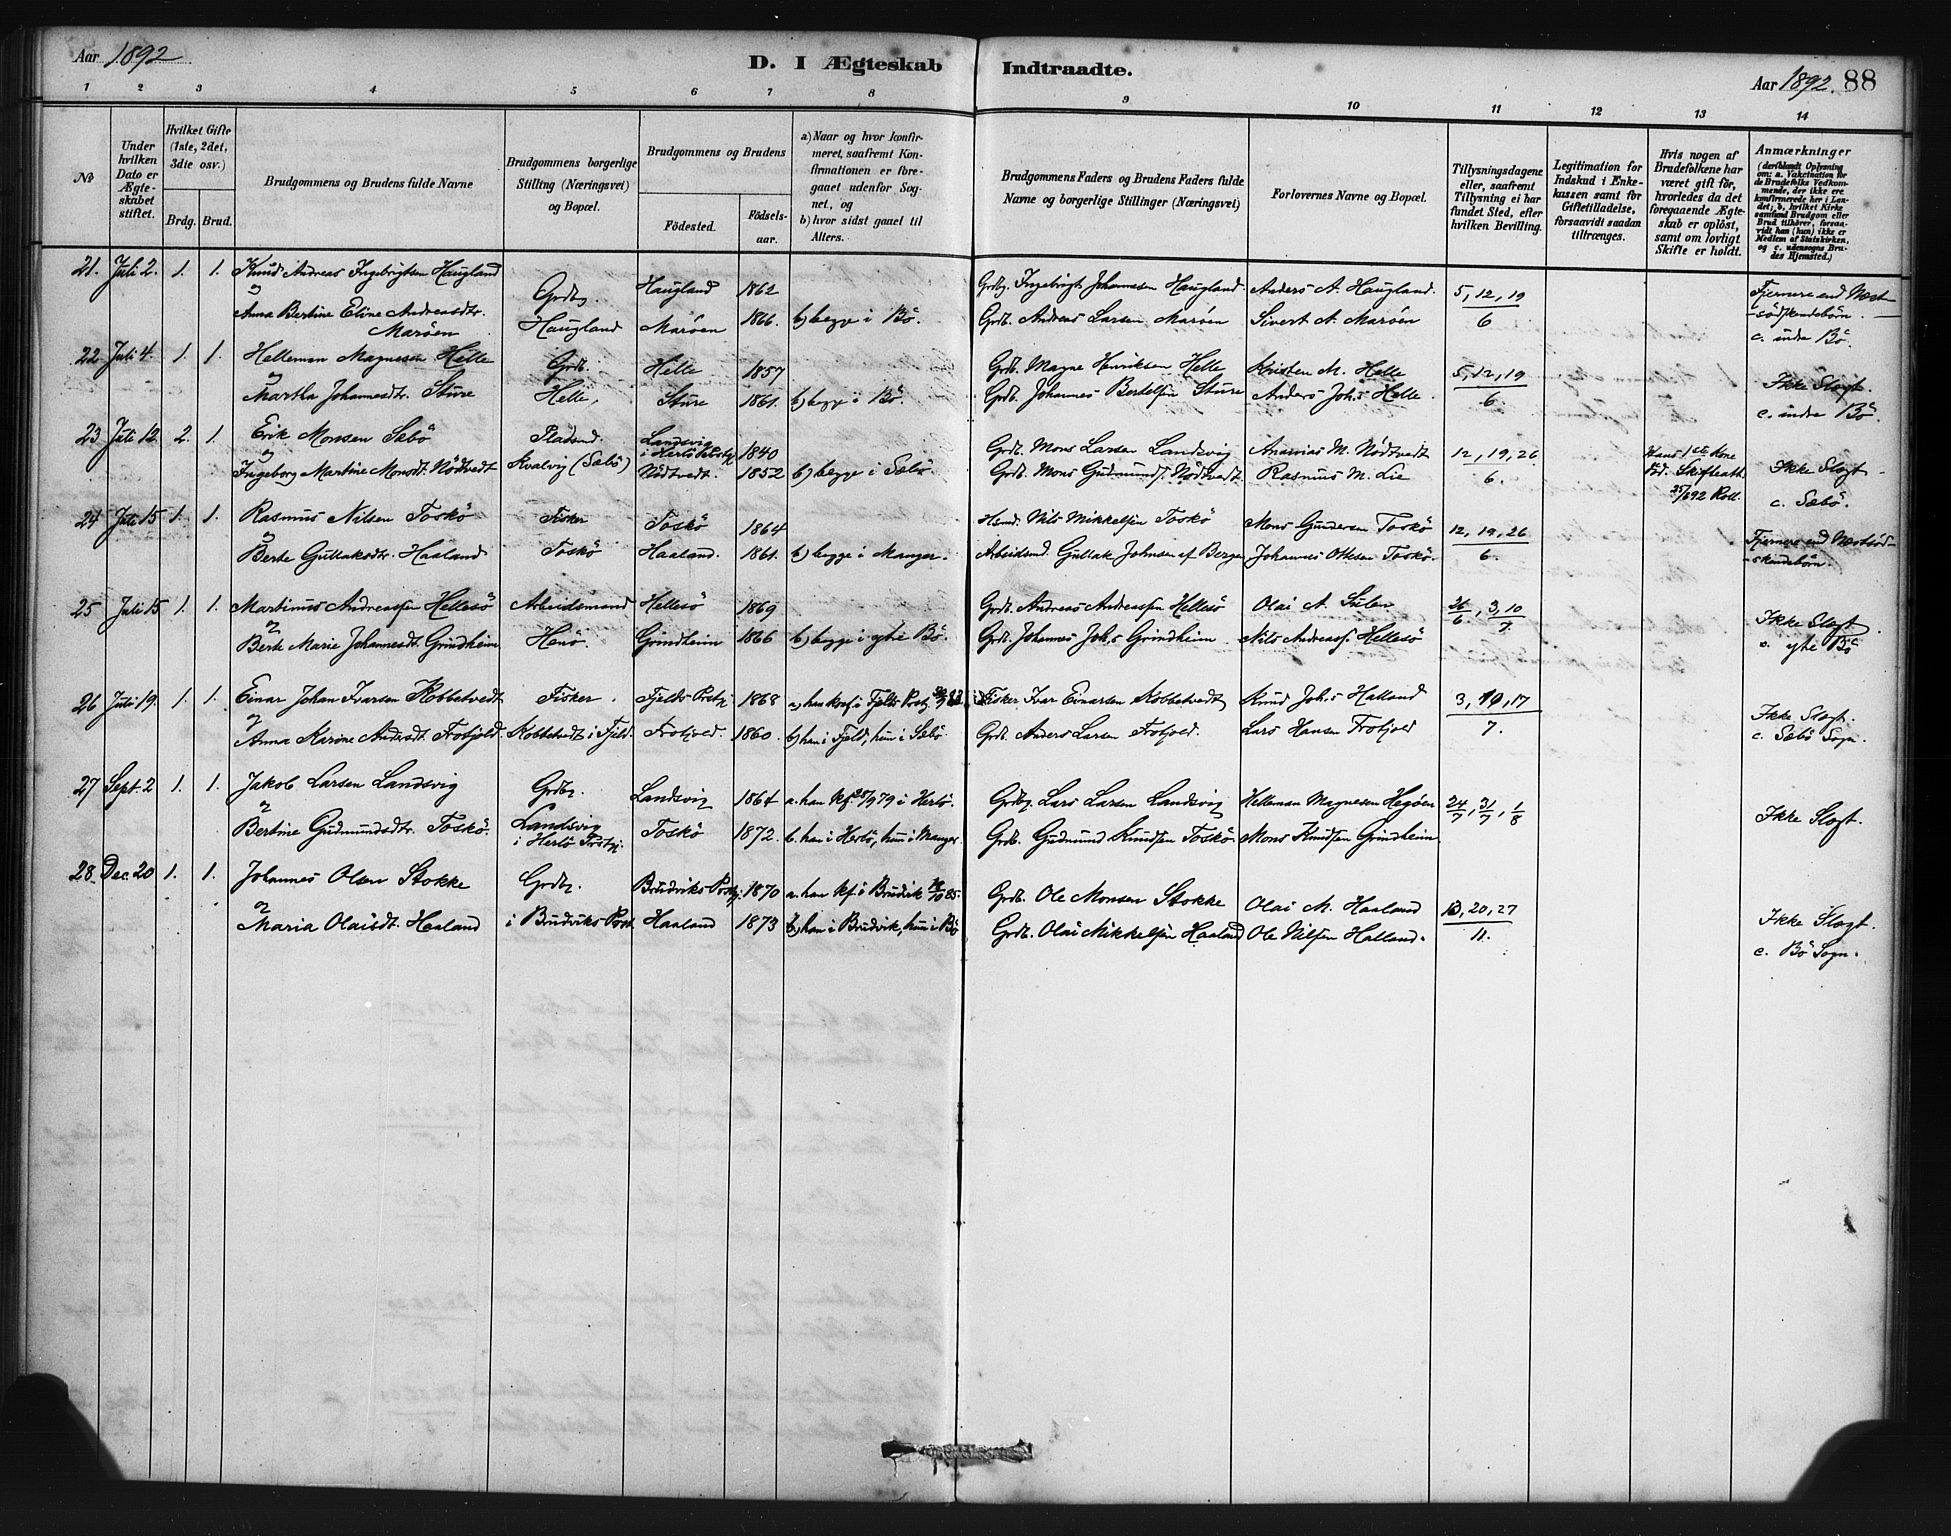 Aar 1892
D. I Ægteskab Indtraadte.
Aar 1892. 88
1 2 3 4 5 6 7 8 9 10 11 12 13 14
No
Under hvilken Dato er Ægteskabet stiftet.
Hvilket Gifte (1ste, 2det, 3dte osv.)
Brdg. Brud.
Brudgommens og Brudens fulde Navne
Brudgommens borgerlige Stilling (Næringsvei) og Bopæl.
Brudgommens og Brudens
Födested.
Födsels-aar.
a) Naar og hvor konfirmeret, saafremt Konfirmationen er foregaaet udenfor Sognet, og
b) hvor sidst gaaet til Alters.
Brudgommens Faders og Brudens Faders fulde Navne og borgerlige Stillinger (Næringsvei)
Forlovernes Navne og Bopæl.
Tillysningsdagene eller, saafremt Tillysning ei har fundet Sted, efter hvilken Bevilling.
Legitimation for Indskud i Enkekassen samt for Giftetilladelse, forsaavidt saadan tiltrænges.
Hvis nogen af Brudefolkene har været gift för, hvorledes da det foregaaende Ægteskab er oplöst, samt om lovligt Skifte er holdt.
Anmærkninger
(deriblandt Oplysning om: a. Vakcination for de Brudefolks Vedkommende, der ikke ere konfirmerede her i Landet; b. hvilket Kirkesamfund Brudgom eller Brud tilhörer, forsaavidt han (hun) ikke er Medlem af Statskirken, og c. udensogns Brudes Hjemsted.)
21. Juli 2. 1. 1. Knud Andreas Ingebrigtsen Haugland Grdbr. Haugland 1862 Grdbr. Ingebrigt Johannesen Haugland. Anders A. Haugland. 5, 12, 19 Fjernere end Næst-
Anna Bertine Eline Andreasdtr. Haugland Maröen 1866. b) begge i Bö. Grdb. Andreas Larsen Maröen Sivert A. Maröen 6 södskendebörn.
Maröen c. indre Bö.
22. Juli 4. 1. 1. Helleman Magnesen Helle Grdb. Helle 1857 Grdb. Magne Henriksen Helle Kristen M. Helle 5, 12, 19
Martha Johannesdtr. Sture Helle, Sture 1861. b) begge i Bö. Grdb. Johannes Bertelsen Sture Anders Joh.s Helle. 6 Ikke Slægt.
c. indre Bö.
23 Juli 12. 2. 1. Erik Monsen Sæbö Pladsmd. Landsvig i Herlö Prstgj. 1840 Grdb. Mons Larsen Landsvig Ananias M. Nödtvedt 12, 19, 26 Hans 1ste Kone
Ingeborg Martine Monsdt. Nödtvedt Kvalvig (Sæbö) Nödtvedt. 1852 b) begge i Sæbö. Grdb. Mons Gudmunds. Nödtvedt. Rasmus M. Lie 6. död. Skifteatt. Ikke Slægt
25/6 92 c. Sæbö.
24 Juli 15 1. 1. Rasmus Nilsen Toskö Fisker Toskö 1864 Nils Mikkelsen Toskö Mons Gundersen Toskö 12, 19, 26 Fjernere end Næstsöd-
Berte Gullaksdtr. Haaland Toskö Haaland. 1861. b) begge i Manger. Arbeidsmd. Gullak Johnsen af Bergen Johannes Olsen Toskö. 6. skendebörn.
25 Juli 15. 1. 1. Martinus Andreassen Hellesö Arbeidsmand Hellesö 1869 Grdb. Andreas Andreassen Hellesö Olai A. Sulen 26/6, 3, 10/7 Ikke Slægt.
Berte Marie Johannesdt. Grindheim Henö. Grindheim 1866 b) begge i ytre Bö. Grdb. Johannes Joh.s Grindheim Nils Andreass. Hellesö c. ytre Bö
26 Juli 19. 1. 1. Einar Johan Ivarsen Kobbetvedt Fisker. Fjelds Prstgj. 1868 a) han konf. i Fjelds Prstgj. Fisker Ivar Einarsen Kobbetvedt Knud Joh.s Halland 3, 10, 17 Ikke Slægt.
Anna Karine Andersdt. Frotjold. Kobbetvedt i Fjeld. Frotjold. 1860. b) han i Fjeld, hun i Sæbö. Grdb. Anders Larsen Frotjold. Lars Hansen Frotjold 7. c. Sæbö Sogn.
27 Sept. 2 1. 1. Jakob Larsen Landsvig Grdbr. Landsvig 1864 a. han kf. 28/9 79 i Herlö. Grdbr. Lars Larsen Landsvig Helleman Magnesen Hegöen 24/7, 31/7, 1/8
Bertine Gudmundsdtr. Toskö. Landsvig i Herlö Prstgj. Toskö 1872. b. han i Herlö, hun i Manger. Grdb. Gudmund Knudsen Toskö Mons Knudsen Grindheim Ikke Slægt.
28. Dec. 20 1. 1. Johannes Olsen Stokke Grdbr. Bruviks Prstgj. 1870 a. han kf. i Bruvik 85. Grdb. Ole Monsen Stokke Olai M. Haaland 13, 20, 27
Maria Olaisdt. Haaland i Bruviks Prst. Haaland 1873 b) han i Bruvik, hun i Bö Grdb. Olai Mikkelsen Haaland Ole Nilsen Halland. 11. Ikke Slægt.
c. Bö Sogn.